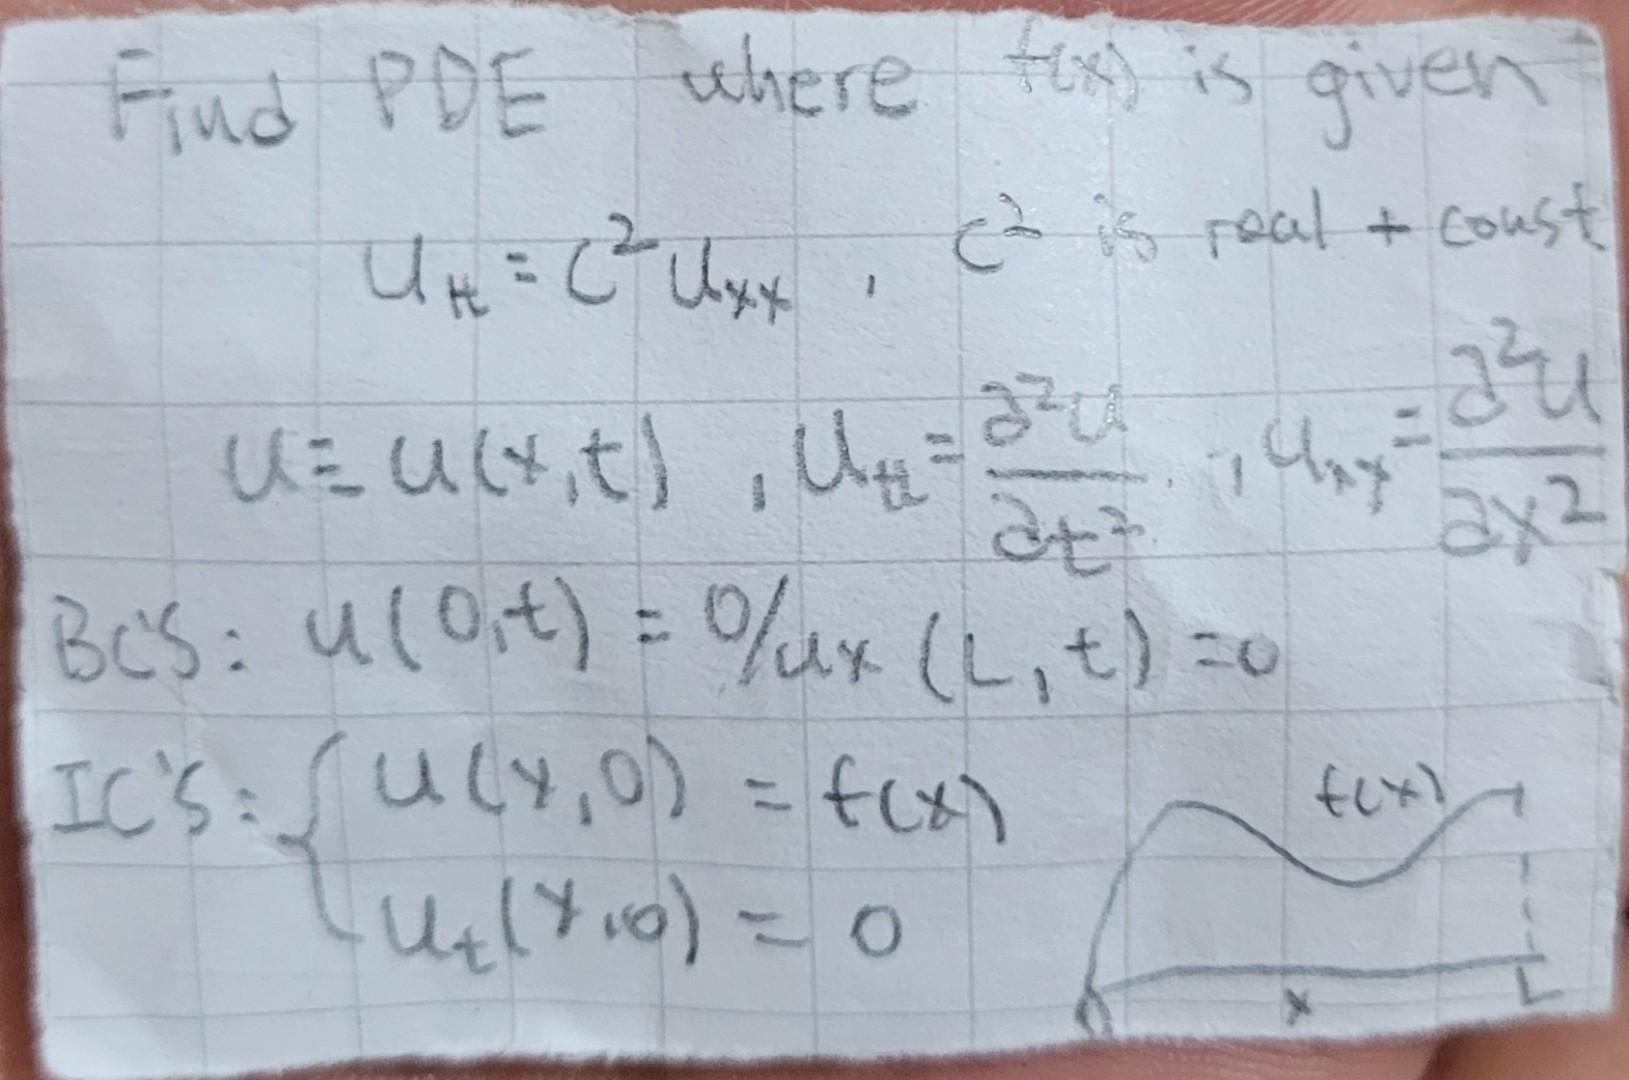 Find PDE where f(x) is given
u_tt = c² u_xx , c² is real + const
u ≡ u(x,t) , u_tt = ∂²u/∂t² , u_xx = ∂²u/∂x²
BC'S: u(0,t) = 0/ux (L,t) = 0
IC'S: { u(x,0) = f(x)
u_t(x,0) = 0
f(x)
0 x L